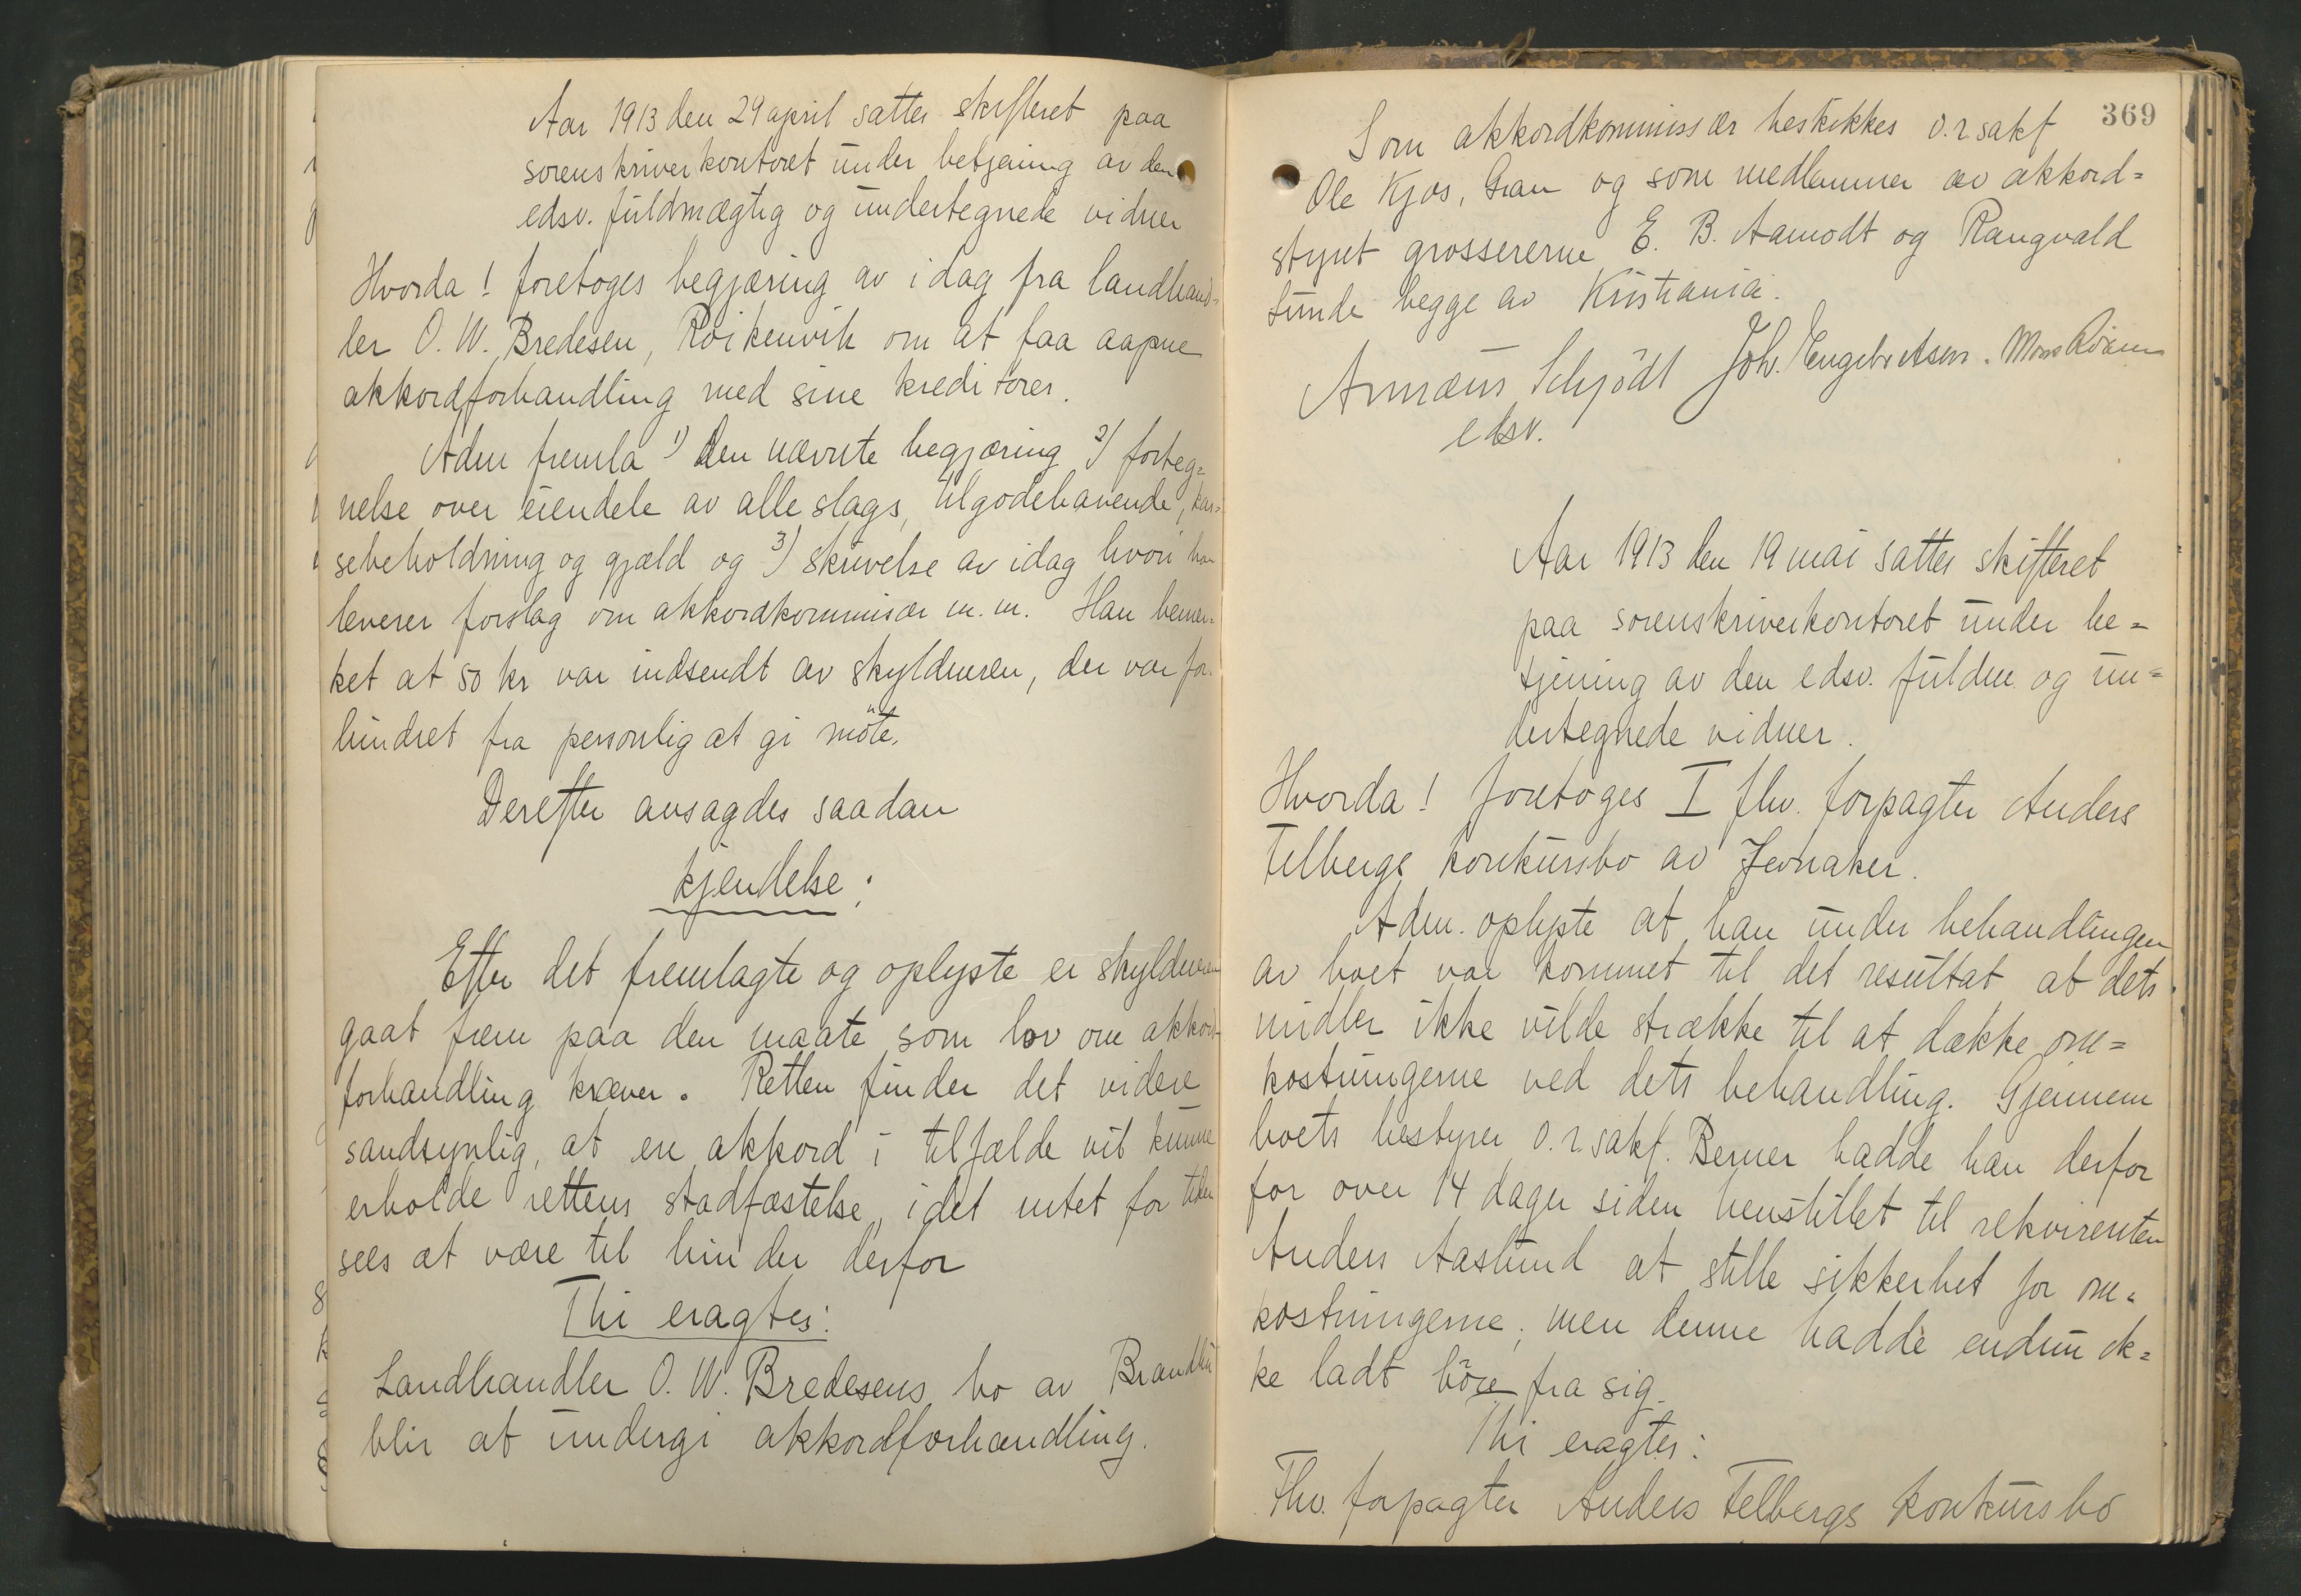 Aar 1913 den 29 april sattes skifteret paa
sorenskriverkontoret under betjening av den
edsv. fuldmægtig og undertegnede vidner
Hvorda! foretoges begjæring av idag fra landhand-
ler O. W. Bredesen, Röikenvik om at faa aapne
akkordforhandling med sine kreditorer.
Adm fremla 1) den nævnte begjæring 2) forteg=
nelse over eiendele av alle slags, tilgodehavende, kas=
sebeholdning og gjæld og 3) skrivelse av idag hvori han
leverer forslag om akkordkommisær m. m. Han bemær-
ket at 50 kr var indsendt av skyldneren, der var for-
hindret fra personlig at gi möte.
Derefter avsagdes saadan
kjendelse:
Efter det fremlagte og oplyste er skyldneren
gaat frem paa den maate som lov om akkord-
forhandling kræver. Retten finder det videre
sandsynlig, at en akkord i tilfælde vil kunne
erholde rettens stadfæstelse, idet intet for tiden
sees at være til hinder derfor
Thi eragtes:
Landhandler O. W. Bredesens bo av Brandbu
blir at undergi akkordforhandling.
369
Som akkordkommissær beskikkes o.r.sakf
Ole Kjos, Gran og som medlemmer av akkord=
styret grossererne E. B. Aamodt og Rangvald
begge av Kristiania.
Annæus Schjödt Joh. Engebretsen. Mons
edsv.
Aar 1913 den 19 mai sattes skifteret
paa sorenskriverkontoret under be=
tjening av den edsv. fuldm. og un=
dertegnede vidner.
Hvorda! foretoges I fhv. forpagter Anders
Felbergs konkursbo av Jevnaker.
Adm. oplyste at han under behandlingen
av boet var kommet til det resultat at dets
midler ikke vilde strække til at dække om=
kostningerne ved dets behandling. Gjennem
boets bestyrer o.r.sakf. Berner hadde han derfor
for over 14 dager siden henstillet til rekvirenten
Anders Aaslund at stille sikkerhet for om=
kostningerne; men denne hadde endnu ik=
ke ladt höre fra sig.
Thi eragtes:
Fhv. forpagter Anders Felbergs konkursbo